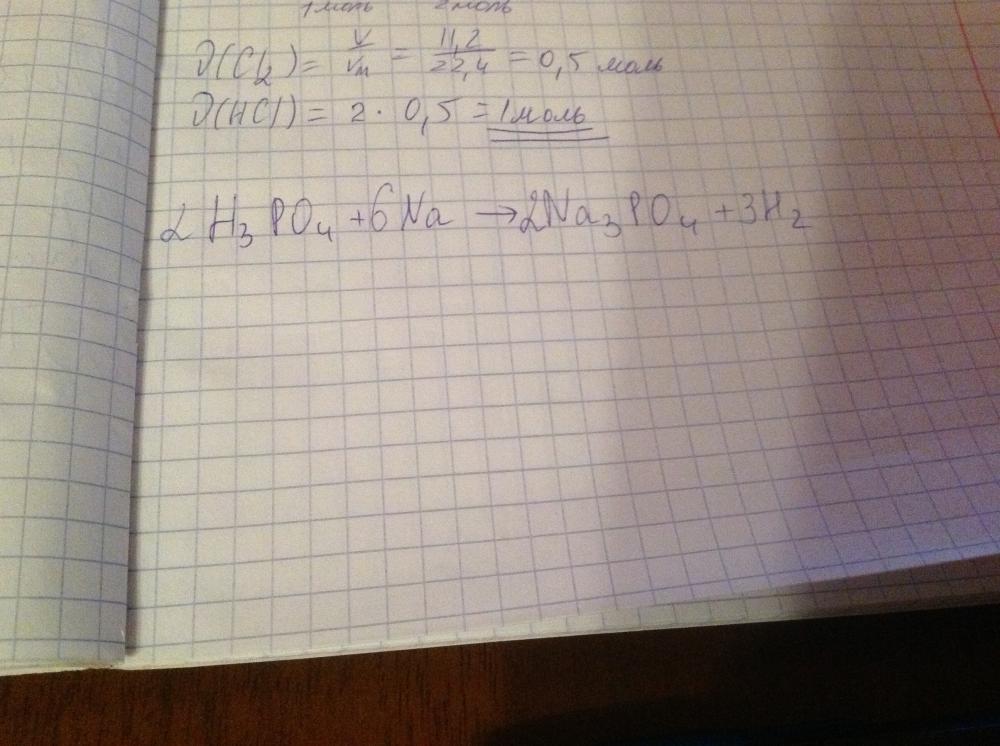 1 моль 2 моль
ν(Cl₂) = V/Vm = 11,2/22,4 = 0,5 моль
ν(HCl) = 2 · 0,5 = 1 моль
2 H₃PO₄ + 6 Na → 2Na₃PO₄ + 3H₂